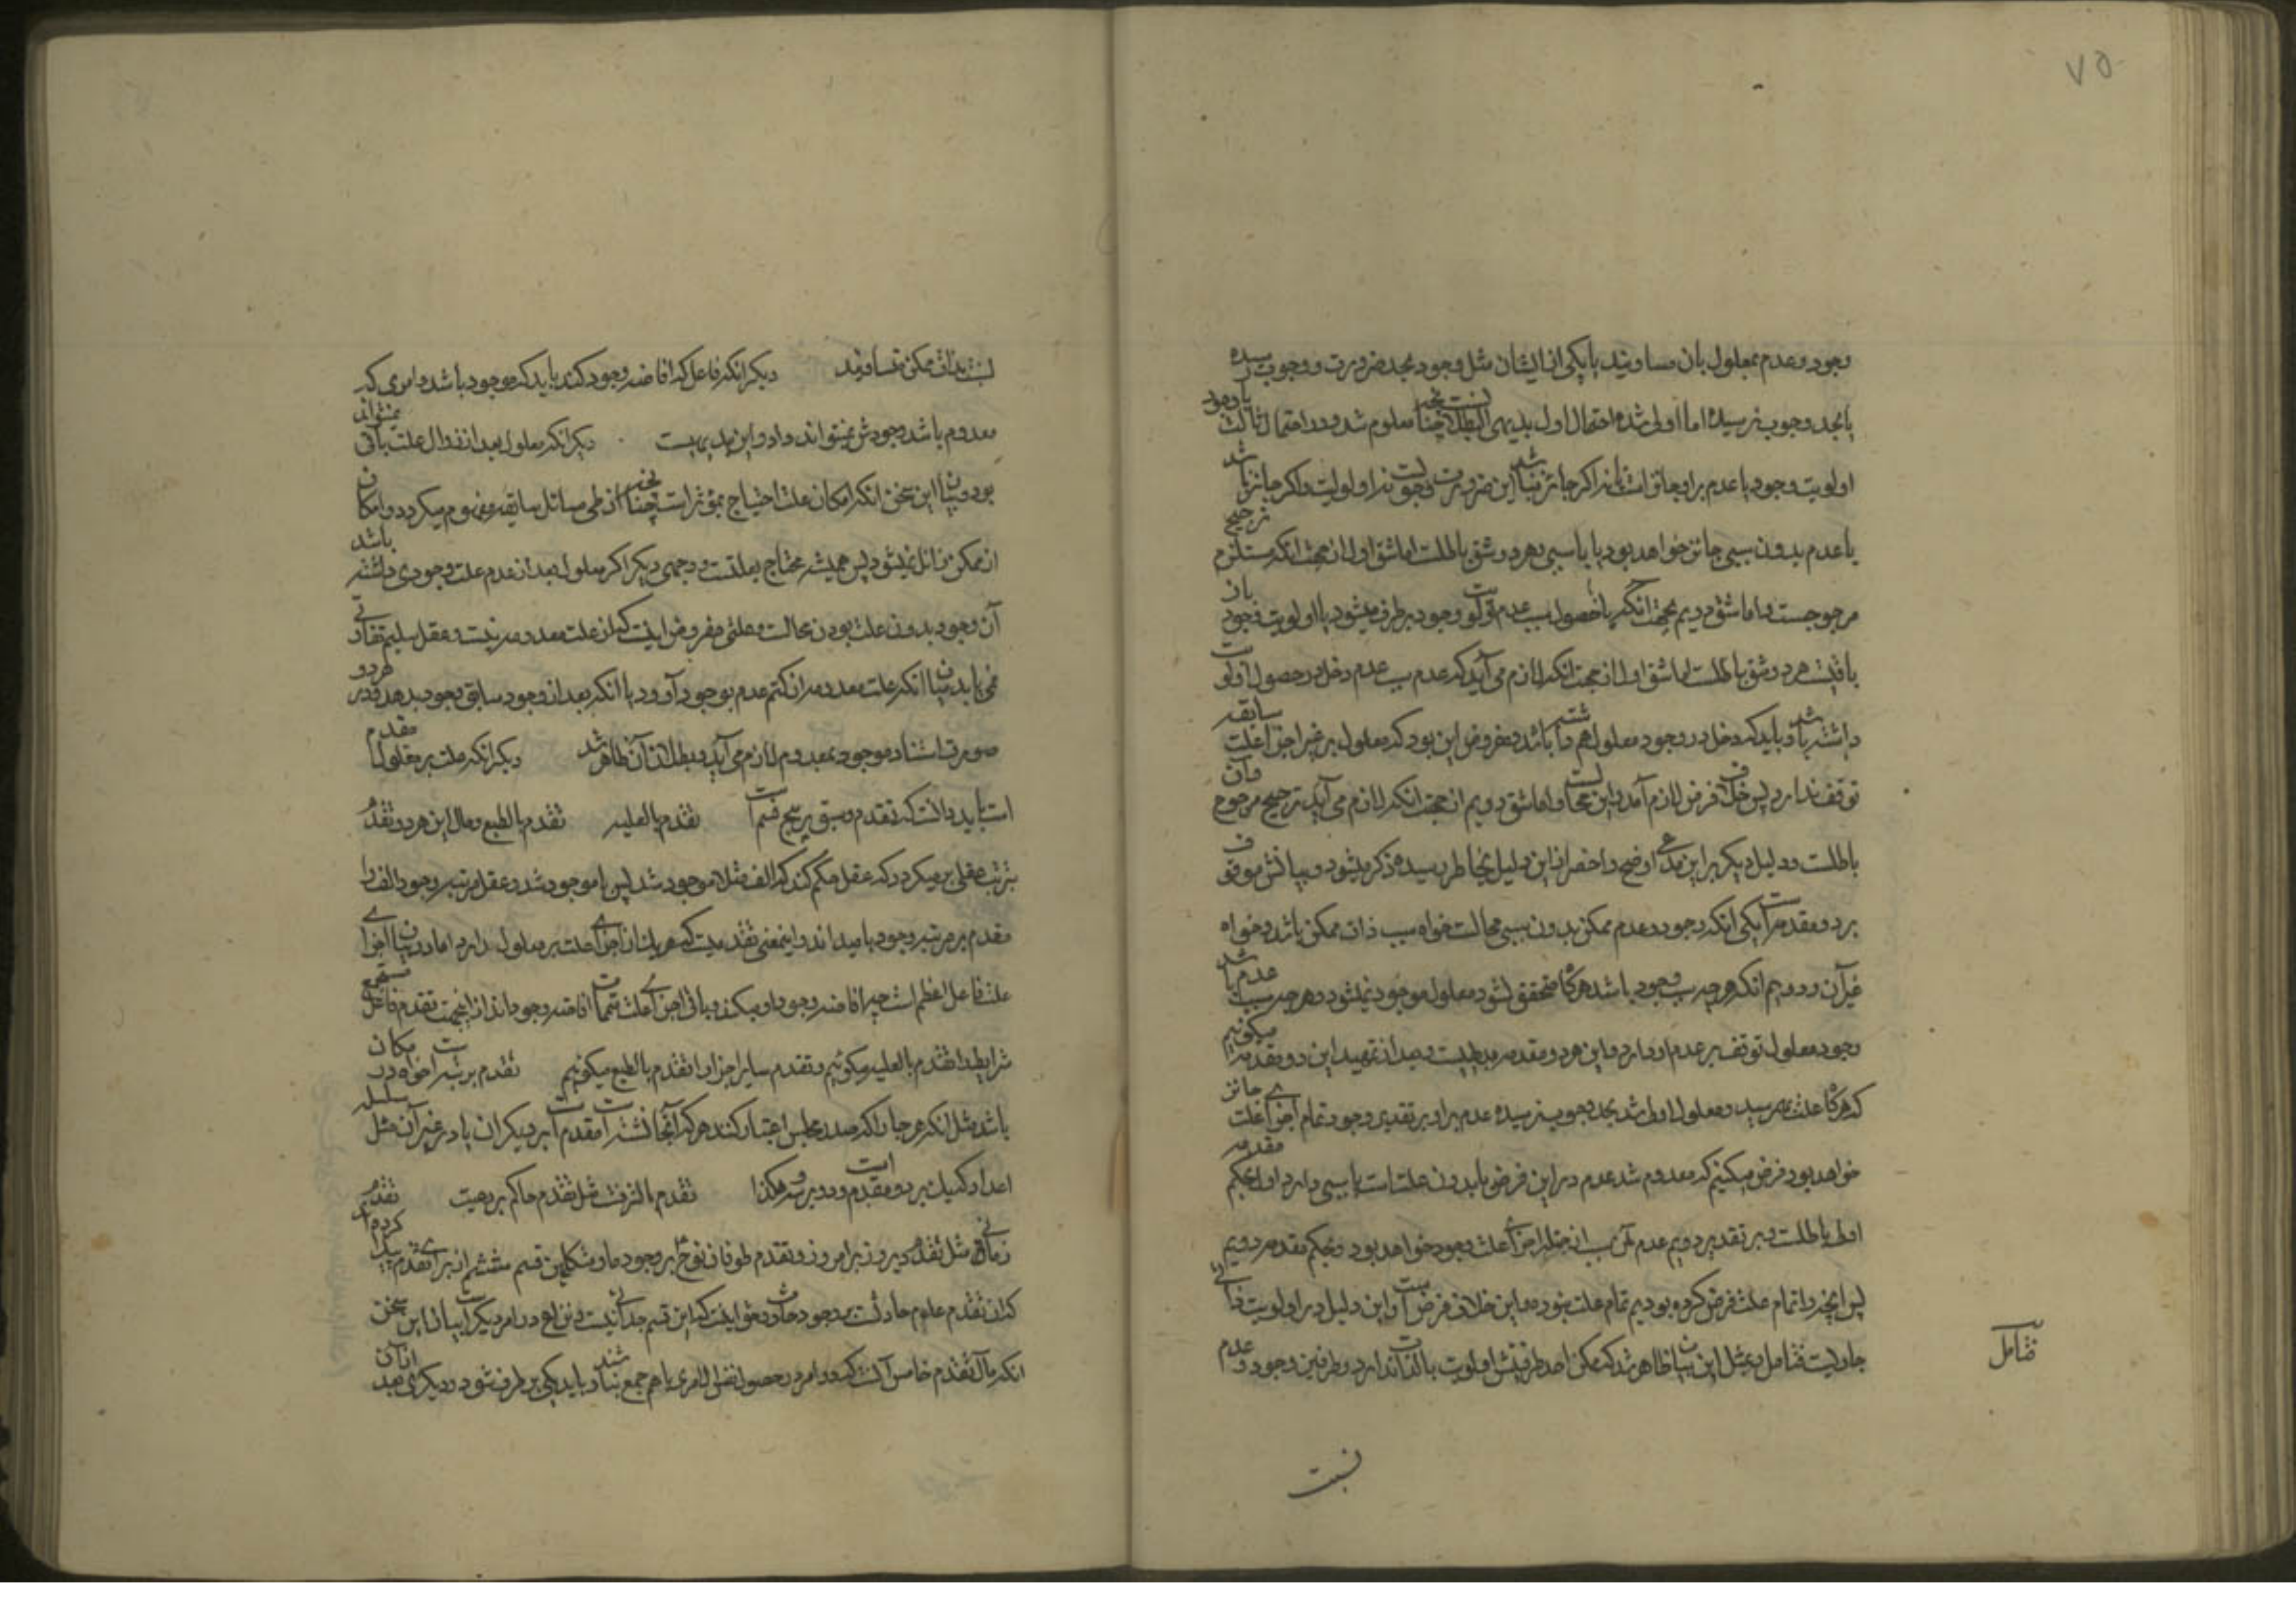 ۷۵
وجود و عدم بمعلول بان مساویند یا یکی از ایشان مثل وجود بحد ضرورت و وجوب رسیده
یا بحد وجوب نرسیده اما اولی شده احتمال اول بدیهی البطلانست چنانچه معلوم شد و در احتمال ثالث
اولویت وجود یا عدم برا و جائز است یا نه اگر جائز نباشد این ضرورت و وجوبست نه اولویت و اگر جائز باشد
یا عدم بدون سببی جائز خواهد بود یا با سببی و هر دو شق باطلست اما شق اول از جهت انکه مستلزم ترجیح
مرجوحست و اما شق دویم بجهت انکه یا حصول سبب عدم اولویت وجود برطرف میشود یا اولویت وجود باز
باقیست هر دو شق باطلست اما شق اول از جهت انکه لازم می آید که عدم سبب عدم دخل در حصول اولویت
داشته باشد و باید که دخل در وجود معلول هم داشته باشد و مفروض این بود که معلول بر غیر اجزا علت سابقه
توقف ندارد پس خلاف فرض لازم آمد و این محالست و اما شق دویم از جهت انکه لازم می آید ترجیح مرجوح و آن
باطلست و دلیل دیگر بر این مدعی اوضح و اخصر از این دلیل بخاطر رسیده ذکر میشود و بیانش موقوف
بر دو مقدمه است یکی انکه وجود و عدم ممکن بدون سببی محالست خواه سبب ذات ممکن باشد و خواه
غیر آن و دویم انکه هر چه سبب وجود باشد هرگاه متحقق نشود معلول موجود نمیشود و هر چه سبب عدم باشد
وجود معلول توقف بر عدم او دارد و این هر دو مقدمه بدیهیست و بعد از تمهید این دو مقدمه میگوئیم
که هرگاه علت بهم رسید و معلول اولی شد بحد وجوب نرسیده عدم برا و بر تقدیر وجود تمام اجزای علت جائز
خواهد بود فرض میکنیم که معدوم شد عدم در این فرض یا بدون علت است یا سببی دارد اول بحکم مقدمه
اولی باطلست و بر تقدیر دویم عدم آن سبب از جمله اجزای علت وجود خواهد بود بحکم مقدمه دویم
پس آنچه را تمام علت فرض کرده بودیم تمام علت نبوده و این خلاف فرضست و این دلیل در اولویت ذاتی
جاریست فتامل و بمثل این بیان ظاهر شد که ممکن احد طرفینش اولویت بالذات ندارد و طرفین وجود و عدم
فتامل
نسبت
نسبت بذات ممکن متساویند دیگر انکه فاعل که افاضه وجود کند باید که موجود باشد و امری که
معدوم باشد وجودش نمیتواند داد و این بدیهیست دیگر انکه معلول بعد از زوال علت باقی نمیتواند
بود و بیان این سخن انکه امکان علت احتیاج بمؤثر است چنانچه از طی مسائل سابقه مفهوم میگردد و امکان
از ممکن زائل نمیشود پس همیشه محتاج بعلتست و وجهی دیگر اگر معلول بعد از عدم علت وجودی داشته باشد
آن وجود بدون علت بودن محالست و علتی مفروض اینست که از علت معدومه نیست و عقل سلیم تفاوتی
نمی یابد میان انکه علت معدومه از کتم عدم بوجود آورد یا انکه بعد از وجود سابق وجود بدهد و در هر دو
صورت استناد موجود بمعدوم لازم می آید و بطلان آن ظاهر شد دیگر انکه علت بر معلول مقدم
است باید دانست که تقدم و سبق بر پنج قسم است تقدم بالعلیه تقدم بالطبع و مال این هر دو تقدم
بترتیب عقلی برمیگردد که عقل حکم کند که الف مثلا موجود شد پس با موجود شد و عقل مرتبه وجود الف را
مقدم بر مرتبه وجود با میداند و اینمعنی تقدمیست که هر یک از اجزای علت بر معلول دارد اما در میان اجزا
علت فاعل اعظم است چه افاضه وجود او میکند و باقی اجزای علت متممات افاضه وجودند از اینجهت تقدم فاعل مستجمع
شرایط را تقدم بالعلیه میگوئیم و تقدم سایر اجزا را تقدم بالطبع میگوئیم تقدم برتبه است خواه در مکان
باشد مثل انکه هر جا را که صدر مجلس اعتبار کنند هر که آنجا نشسته است مقدم است بر دیگران یا در غیر آن مثل سلسله
اعداد که یک بر دو مقدم است و دو بر سه و هکذا تقدم بالشرف مثل تقدم حاکم بر رعیت تقدم
زمانی مثل تقدم دیروز بر امروز و تقدم طوفان نوح بر وجود ما و متکلمین قسم ششم از برای تقدم پیدا کرده اند
کان تقدم عدم حادث بر وجود حادث و حق اینست که این قسم جدائی نیست و نزاع در امر دیگر است بیان این سخن
انکه مآل تقدم خامس آنست که دو امر در حصول نفس الامری با هم جمع نباشند و باید یکی برطرف شود و دیگری بعد از آن